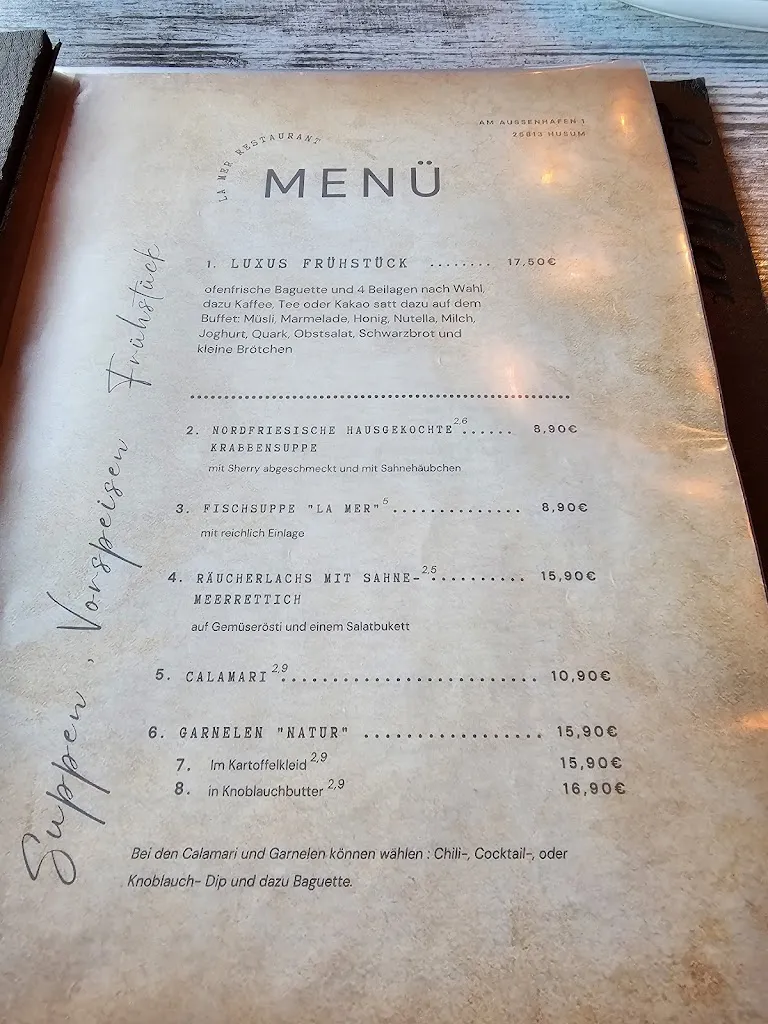 AM AUSSENHAFEN 1
25813 HUSUM
LA MER RESTAURANT
MENÜ
Frühstück
1. LUXUS FRÜHSTÜCK ........ 17,50€
ofenfrische Baguette und 4 Beilagen nach Wahl,
dazu Kaffee, Tee oder Kakao satt dazu auf dem
Buffet: Müsli, Marmelade, Honig, Nutella, Milch,
Joghurt, Quark, Obstsalat, Schwarzbrot und
kleine Brötchen
Suppen, Vorspeisen
2. NORDFRIESISCHE HAUSGEKOCHTE 2,6 ...... 8,90€
KRABBENSUPPE
mit Sherry abgeschmeckt und mit Sahnehäubchen
3. FISCHSUPPE "LA MER" 5 .............. 8,90€
mit reichlich Einlage
4. RÄUCHERLACHS MIT SAHNE- 2,5 .......... 15,90€
MEERRETTICH
auf Gemüserösti und einem Salatbukett
5. CALAMARI 2,9 ........................ 10,90€
6. GARNELEN "NATUR" ................. 15,90€
7. Im Kartoffelkleid 2,9 15,90€
8. in Knoblauchbutter 2,9 16,90€
Bei den Calamari und Garnelen können wählen : Chili-, Cocktail-, oder
Knoblauch- Dip und dazu Baguette.
La Mer